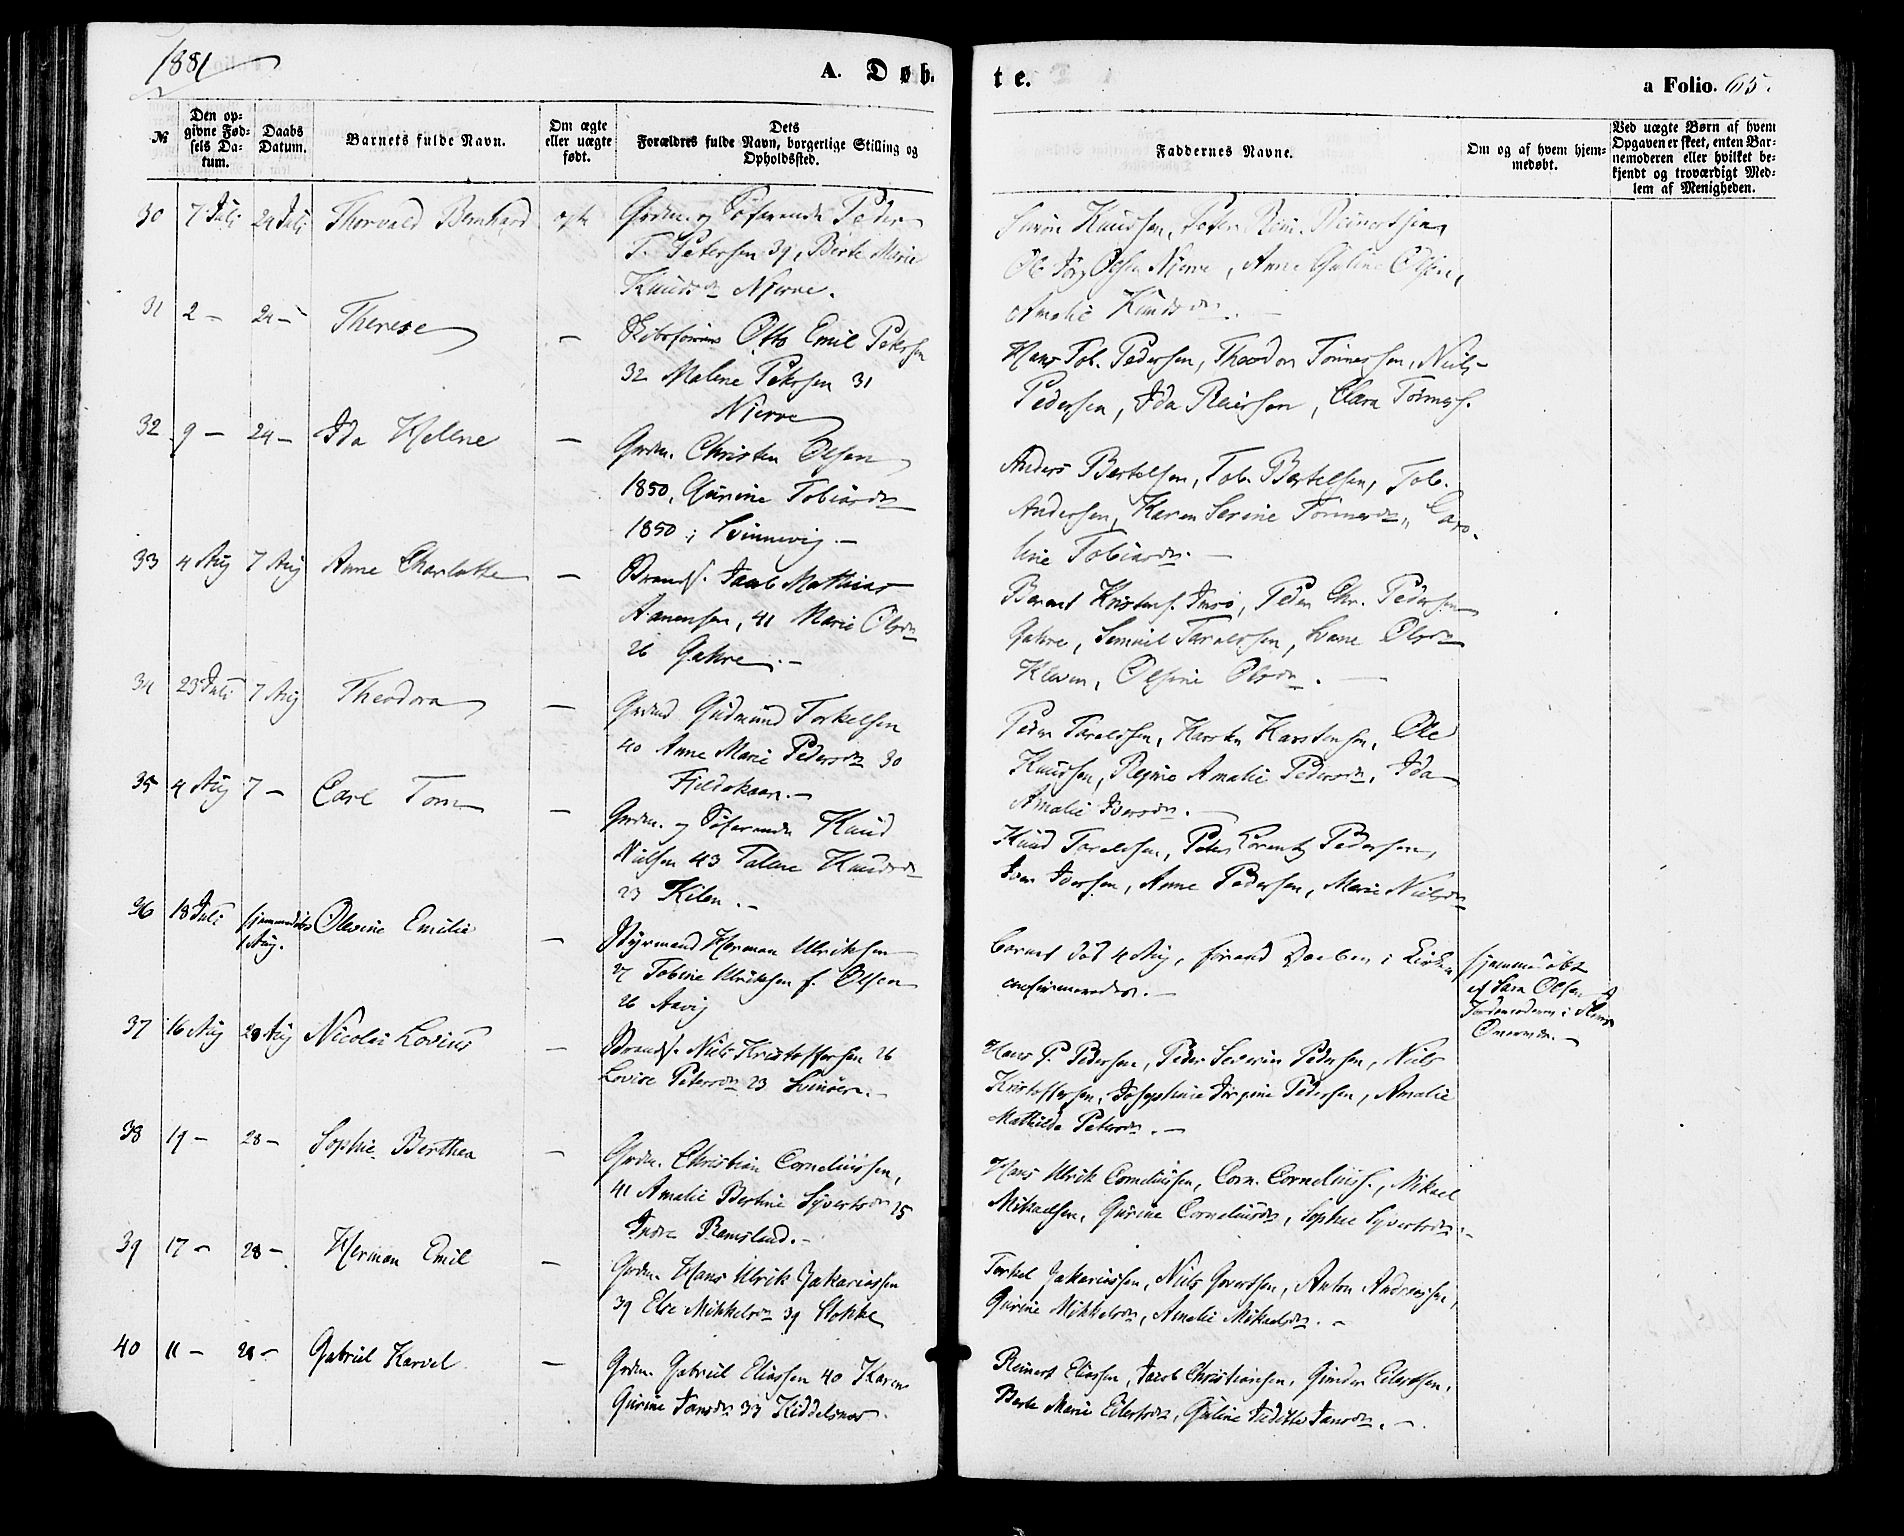 1881
A. Døb-
te.
a Folio. 65.
№
Den op-
givne Fød-
sels Da-
tum.
Daabs
Datum.
Barnets fulde Navn.
Om ægte
eller uægte
født.
Dets
Forældres fulde Navn, borgerlige Stilling og
Opholdssted.
Faddernes Navne.
Om og af hvem hjem-
medøbt.
Ved uægte Børn af hvem
Opgaven er skeet, enten Bar-
nemoderen eller hvilket be-
kjendt og troværdigt Med-
lem af Menigheden.
30 7 Juli 24 Juli Thorvald Bernhard ægte Grdm. og Søfarende Peder
T. Petersen 39, Berte Marie
Knudsdr Njerve.
Knudsen, Peder Reinertsen,
Olsen Njerve, Anne Guline Olsen,
Amalie Knudsdr.
31 2 – 24 – Therese – Skibsfører Otto Emil Petersen
32 Malene Petersen 31
Njerve
Hans Tob. Pedersen, Theodor Tønnessen, Niels
Pedersen, Ida Reiersen, Clara Tønness.
32 9 – 24 – Ida Helene – Grdm. Christen Olsen
1850, Gurine Tobiasdr
1850; Svinnevig. –
Anders Bertelsen, Tob. Bertelsen, Tob.
Andersen, Karen Serine Tønnesdr, Caro-
line Tobiasdr. –
33 4 Aug 7 Aug Anne Charlotte – Brands. Jacob Mathias
Aanensen, 41 Marie Olsdr
26 Gahre. –
Berent Kristens. Imsø, Peder Chr. Pedersen
Gahre, Samuel Taraldsen, Olsdr
Kleven, Olsine Olsdr. –
34 23 Juli 7 Aug Theodora – Grdmd Gudmund Torkelsen
40 Anne Marie Pedersdr 30
Fjeldskaar. –
Peder Taraldsen, Karsten Karstensen, Ole
Knudsen, Regine Amalie Pedersdr, Ida
Amalie Iversdr. –
35 4 Aug 7 – Carl Tom – Grdm. og Søfarende Knud
Nielsen 43 Talene Knudsdr
23 Kilen. –
Knud Taraldsen, Peder Lorentz Pedersen,
Iver Iversen, Anne Pedersen, Marie Nielsdr
36 18 Juli hjemmedøbt
1 Aug. Olevine Emilie – Styrmand Herman Ulriksen
27 Tobine Ulriksen f. Olsen
26 Aavig
Barnet død 4 Aug, førend Daaben i Kirken
confirmeredes. –
hjemmedøbt
af Sara Olsen
Jordemoderen i
37 16 Aug 28 Aug Nicolai Lovius – Brands. Niels Kristoffersen 26
Lovise Petersdr 23 Svinøen. –
Hans P. Pedersen, Peder Severin Pedersen, Niels
Kristoffersen, Josephine Jørgine Pedersen, Amalie
Mathilde Petersdr. –
38 19 – 28 – Sophie Berthea – Grdm. Christian Corneliussen,
41 Amalie Bertine Syvertsdr 25
Indre Ramsland. –
Hans Ulrik Corneliussen, Corn. Corneliuss., Mikael
Mikaelsen, Gurine Corneliusdr, Sophie Syvertsdr. –
39 17 – 28 – Herman Emil – Grdm. Hans Ulrik Zakariassen
39 Else Mikkelsdr 39 Stokke
Torkel Zakariassen, Niels Govertsen, Anton Andreassen,
Gurine Mikkelsdr, Amalie Mikaelsdr. –
40 11 – 28 – Gabriel Karvel – Grdm. Gabriel Eliassen 40 Karen
Gurine Jansdr 33 Kiddelsnes.
Reinert Eliassen, Jacob Christiansen, Gunder Eilertsen,
Berte Marie Eilertsdr, Guline Judithe Jansdr. –